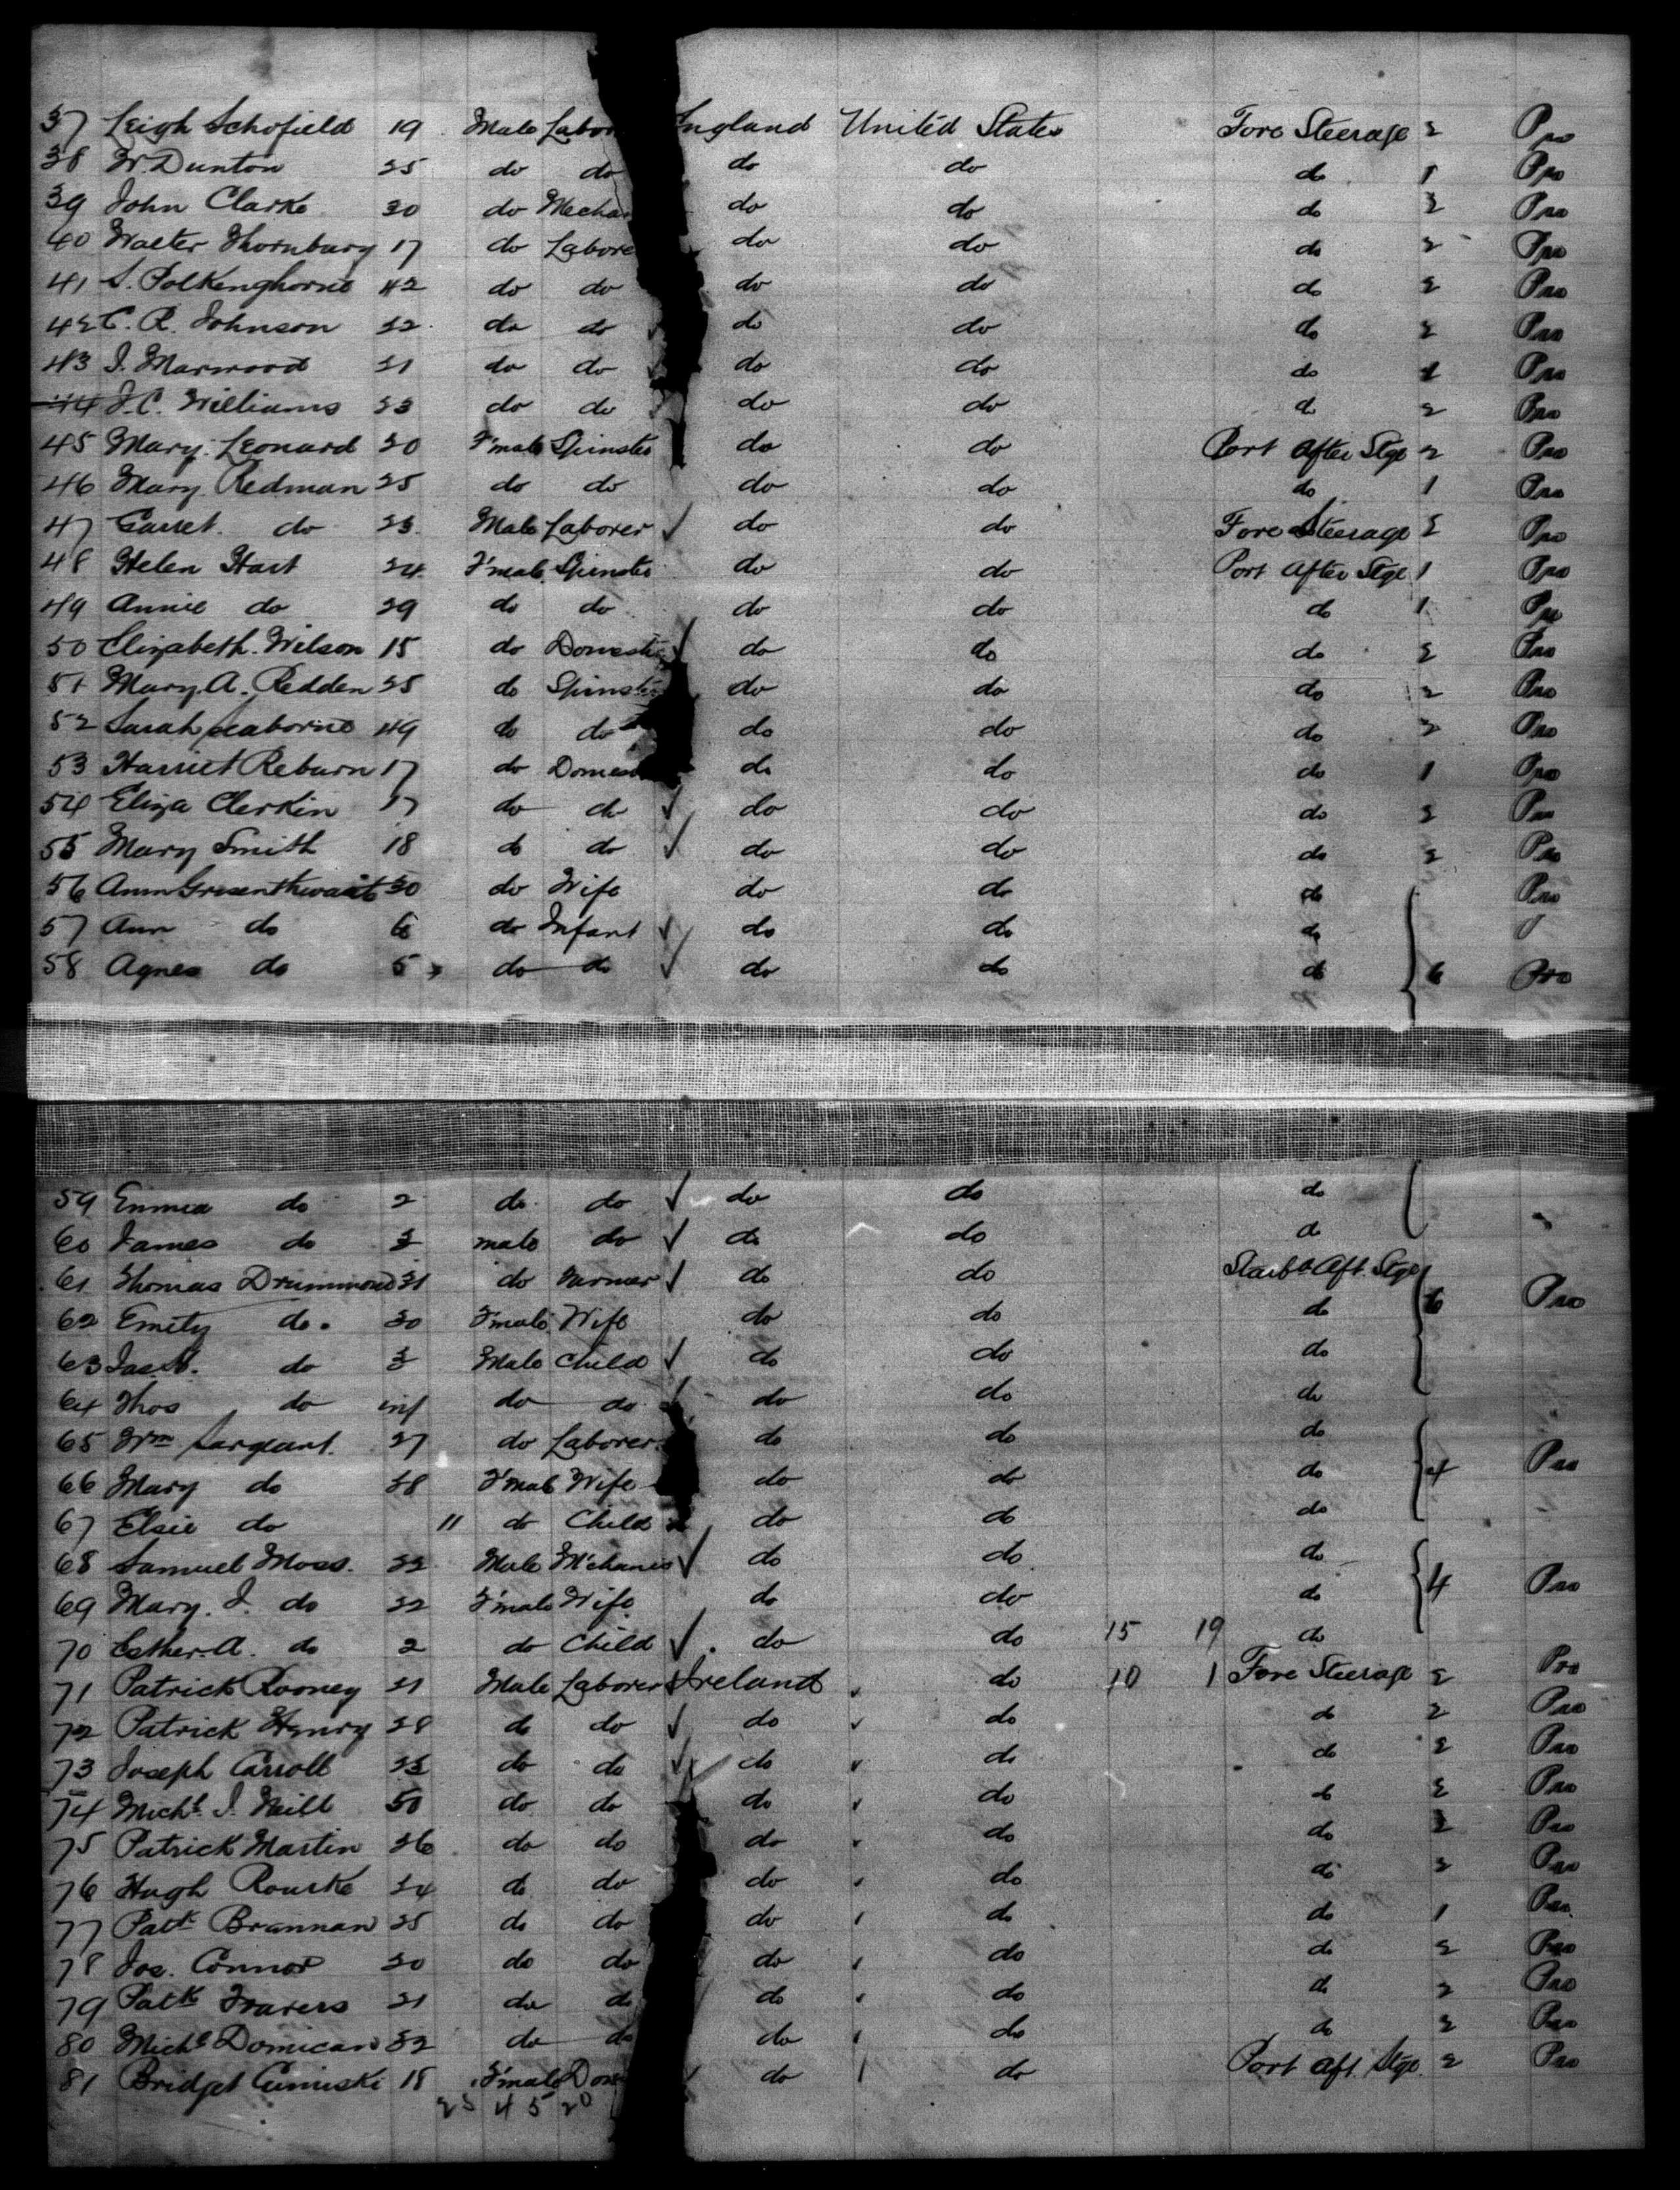 37 Leigh Schofield 19 Male Labor England United States Fore Steerage 2 Pro
38 W. Dunton 25 do do do do do 1 Pro
39 John Clarke 30 do Mecha do do do 2 Pro
40 Walter Thornbury 17 do Labore do do do 2 Pro
41 S. Polkenghorne 42 do do do do do 2 Pro
42 C. R. Johnson 22 do do do do do 2 Pro
43 J. Marwood 21 do do do do do 1 Pro
44 J. C. Williams 23 do do do do do 2 Pro
45 Mary Leonard 20 F'male Spinster do do Port After Stge 2 Pro
46 Mary Redman 25 do do do do do 1 Pro
47 Garret do 23 Male Laborer do do Fore Steerage 2 Pro
48 Helen Hart 24 F'male Spinster do do Port After Stge 1 Pro
49 Annie do 29 do do do do do 1 Pro
50 Elizabeth Wilson 15 do Domestic do do do 2 Pro
51 Mary A. Redden 25 do Spinster do do do 2 Pro
52 Sarah Seaborne 49 do do do do do 2 Pro
53 Harriet Reburn 17 do Domest do do do 1 Pro
54 Eliza Clerkin 17 do do do do do 2 Pro
55 Mary Smith 18 do do do do do 2 Pro
56 Ann 30 do Wife do do do Pro
57 Ann do 6 do Infant do do do
58 Agnes do 5 do do do do do 6 Pro
59 Emma do 2 do do do do do
60 James do male do do do do
61 Thomas Drummond 31 do Farmer do do Starbd Aft. Stge 6 Pro
62 Emily do. 30 F'male Wife do do do
63 do Male Child do do do
64 Thos do inf do do do do do
65 Wm Sargeant 27 do Laborer do do do 4 Pro
66 Mary do 28 F'male Wife do do do
67 Elsie do 11 do Child do do do
68 Samuel Moss. 22 Male M'chanic do do do 4 Pro
69 Mary. J. do 22 F'male Wife do do do
70 Esther. A. do 2 do Child do do 15 19 do
71 Patrick Rooney 21 Male Laborer Ireland do 10 1 Fore Steerage 2 Pro
72 Patrick Henry 28 do do do do do 2 Pro
73 Joseph Carroll 23 do do do do do 2 Pro
74 Michl J. Neill 50 do do do do do 2 Pro
75 Patrick Martin 26 do do do do do 2 Pro
76 Hugh Rourke 24 do do do do do 2 Pro
77 Patk Brannan 25 do do do do do 1 Pro
78 Jos. Connor 20 do do do do do 2 Pro
79 Patk Travers 21 do do do do do 2 Pro
80 Michl Domican 22 do do do do do 2 Pro
81 Bridget Cumiski 18 F'male Dom do do Port Aft. Stge. 2 Pro
25 4 5 20